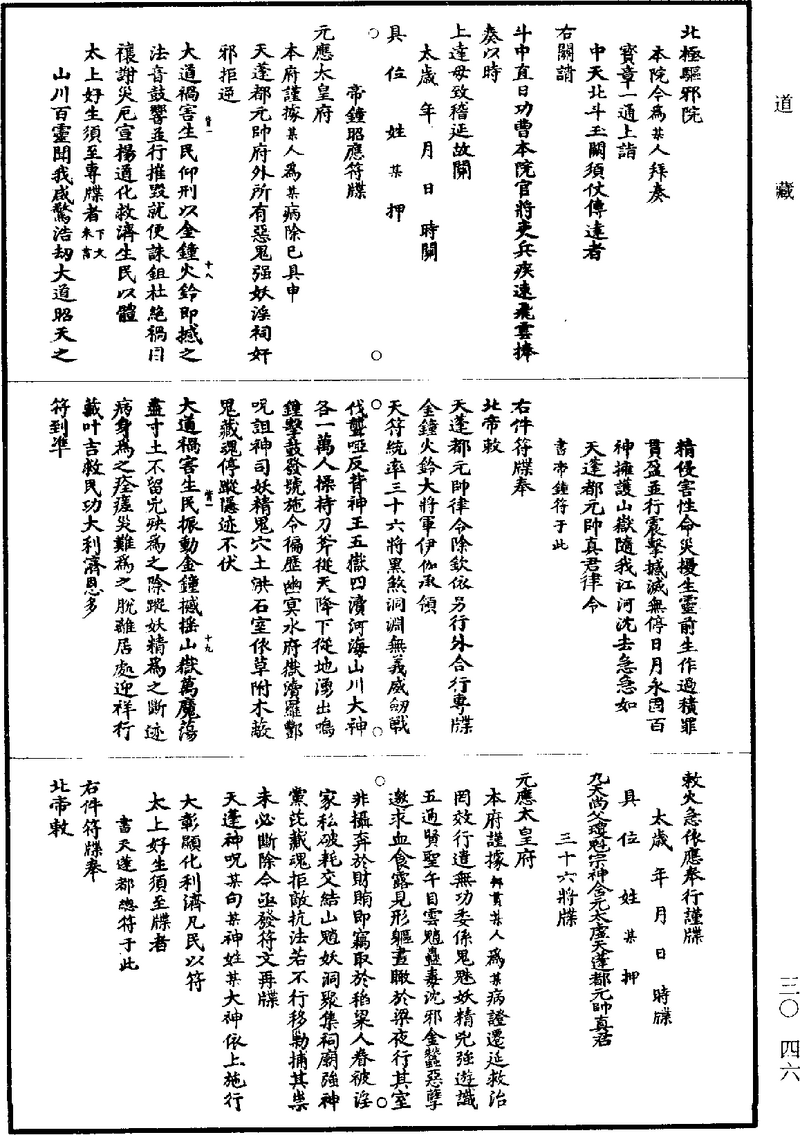 道藏
三〇 四六
北極驅邪院
本院今為某人拜奏
寶章一通上詣
中天北斗玉闕須仗傳達者
右關請
斗中直日功曹本院官將吏兵疾速飛雲捧
奏以時
上達毋致稽延故關
太歲 年 月 日 時關
具 位 姓 某 押
帝鐘昭應符牒
元應太皇府
本府謹據某人為某病除已具申
天蓬都元帥府外所有惡鬼强妖淫祠奸
邪拒逆
大道禍害生民仰刑以金鐘火鈴即撼之
法音鼓響並行摧毀就便誅鉏杜絕禍目
禳謝災厄宣揚道化救濟生民以體
太上好生須至專牒者下文朱書
山川百靈聞我咸驚浩劫大道昭天之
精侵害性命災擾生靈前生作過積罪
貫盈並行震擊撼滅無停日月永固百
神擁護山嶽隨我江河沈去急急如
天蓬都元帥真君律令
書帝鐘符于此
右件符牒奉
北帝敕
天蓬都元帥律令除欽依另行外合行專牒
金鐘火鈴大將軍伊伽承領
天符統率三十六將黑煞洞淵無義威劒戟
伐聾啞反背神王五嶽四瀆河海山川大神
各一萬人操持刀斧從天降下從地湧出鳴
鐘擊鼓發號施令徧歷幽冥水府嶽瀆羅酆
呪詛神司妖精鬼穴土洪石室依草附木蔽
鬼藏魂停蹤隱迹不伏
大道禍害生民振動金鐘撼搖山嶽萬魔蕩
盡寸土不留兇殃為之除蹤妖精為之斷迹
病身為之痊瘥災難為之脫離居處迎祥行
藏叶吉救民功大利濟恩多
符到準
敕火急依應奉行謹牒
太歲 年 月 日 時牒
具 位 姓 某 押
九天尚父瓊魁宗神含元太虛天蓬都元帥真君
三十六將牒
元應太皇府
本府謹據鄉貫某人為某病證遷延救治
罔效行遣無功委係鬼魅妖精兇強遊識
五通賢聖午目雲魈蠱毒沈邪金蠶惡孽
邀求血食露見形軀晝瞰於梁夜行其室
非攝奔於財賄即竊取於稻粱人眷被淫
家私破耗交結山魈妖洞聚集祠廟強神
黨庇藏魂拒敵抗法若不行移勒捕其祟
未必斷除今亟發符文再牒
天蓬神呪某句某神姓某大神依上施行
大彰顯化利濟凡民以符
太上好生須至牒者
書天蓬都總符于此
右件符牒奉
北帝敕